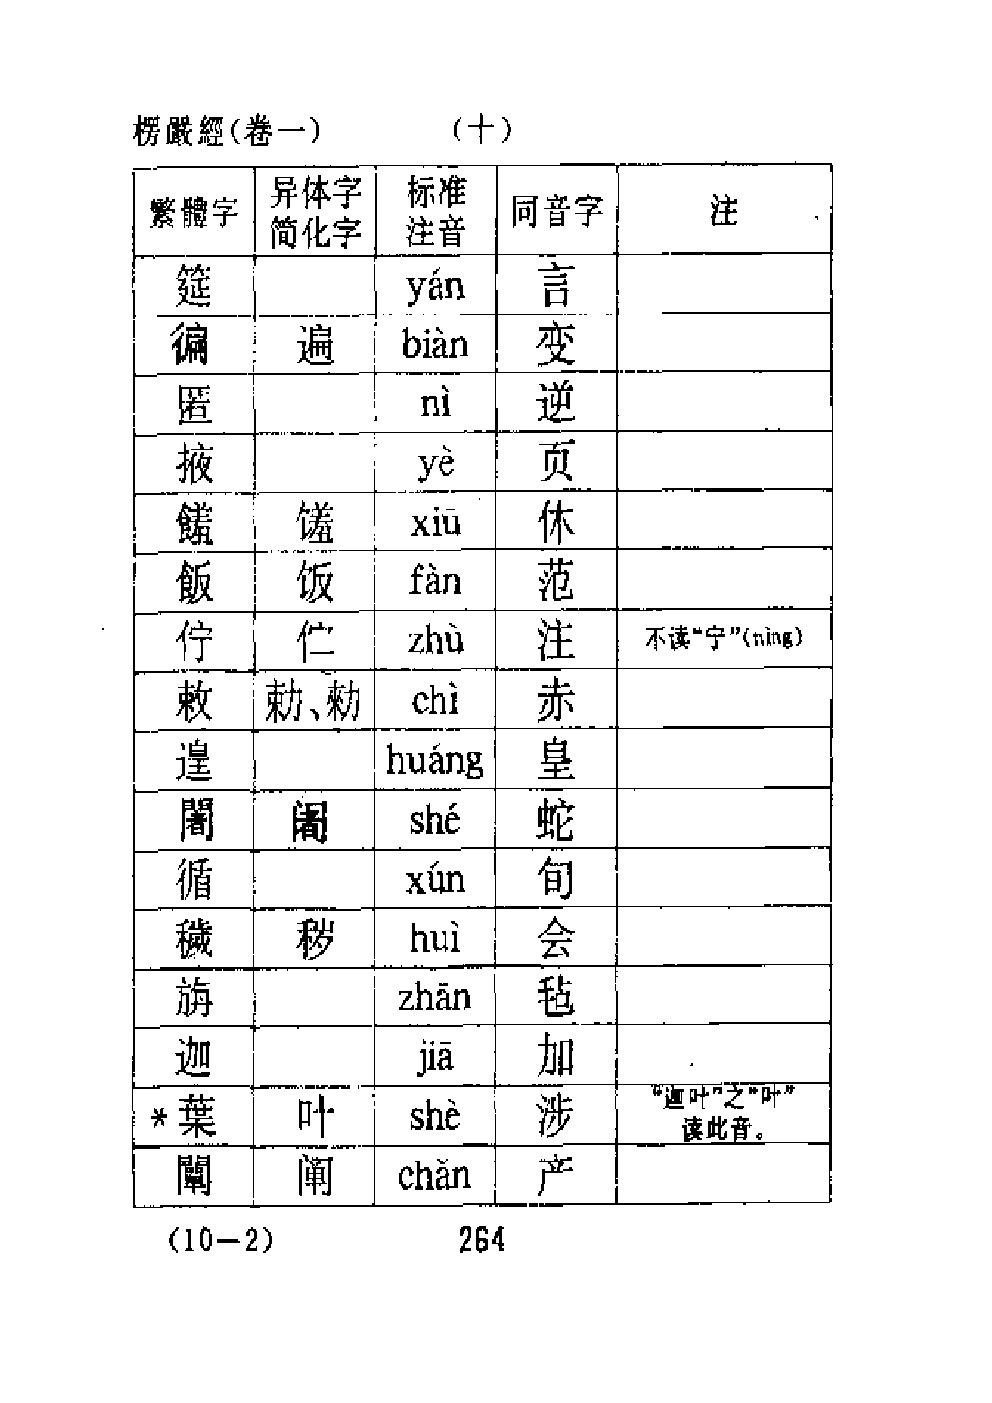 楞嚴經(卷一) (十)
繁體字 异体字 简化字 标准注音 同音字 注
筵 yán 言
徧 遍 biàn 变
匿 nì 逆
掖 yè 页
饈 馐 xiū 休
飯 饭 fàn 范
佇 伫 zhù 注 不读“宁”(nìng)
敕 勅、勑 chì 赤
遑 huáng 皇
闍 阇 shé 蛇
循 xún 旬
穢 秽 huì 会
旃 zhān 毡
迦 jiā 加
*葉 叶 shè 涉 “迦叶”之“叶”读此音。
闡 阐 chǎn 产
(10-2) 264